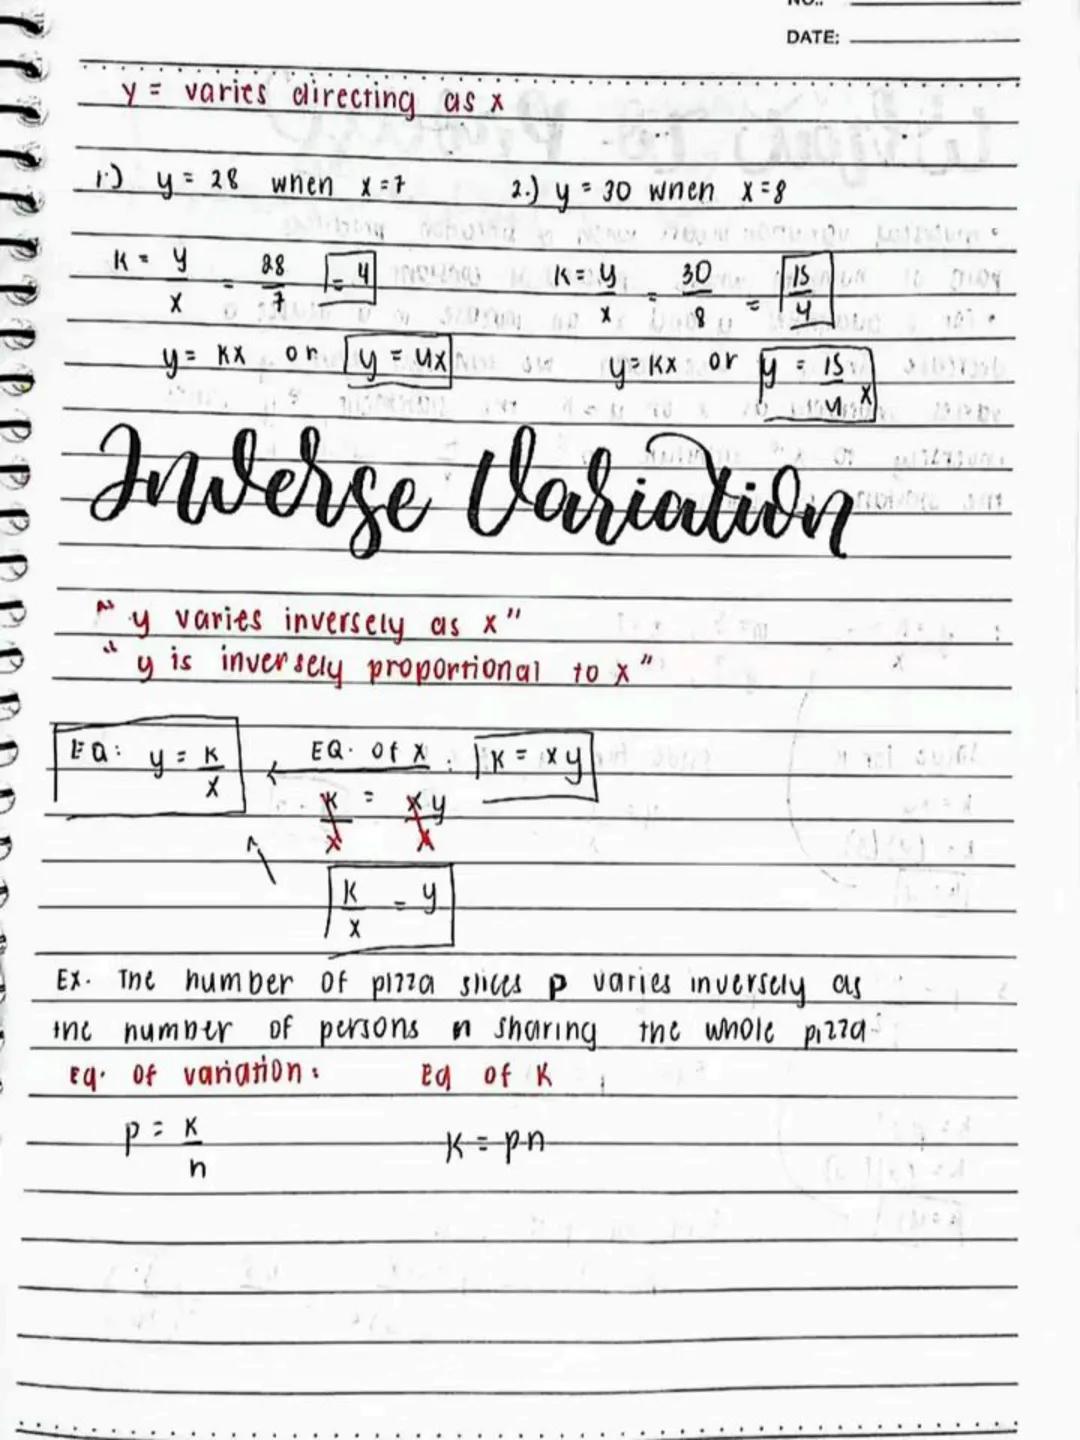 NO.:
DATE:
y = varies directing as x
1.) y = 28 when x = 7
2.) y = 30 when x = 8
k = y/x = 28/7 = 4
k = y/x = 30/8 = 15/4
y = kx or y = 4x
y = kx or y = 15/4 x
Inverse Variation
" y varies inversely as x"
" y is inversely proportional to x"
EQ: y = k/x
EQ. of x : k = xy
k/x = xy/x
k/x = y
Ex. The number of pizza slices p varies inversely as
the number of persons n sharing the whole pizza.
Eq. of variation:
Eq of k
p = k/n
k = pn